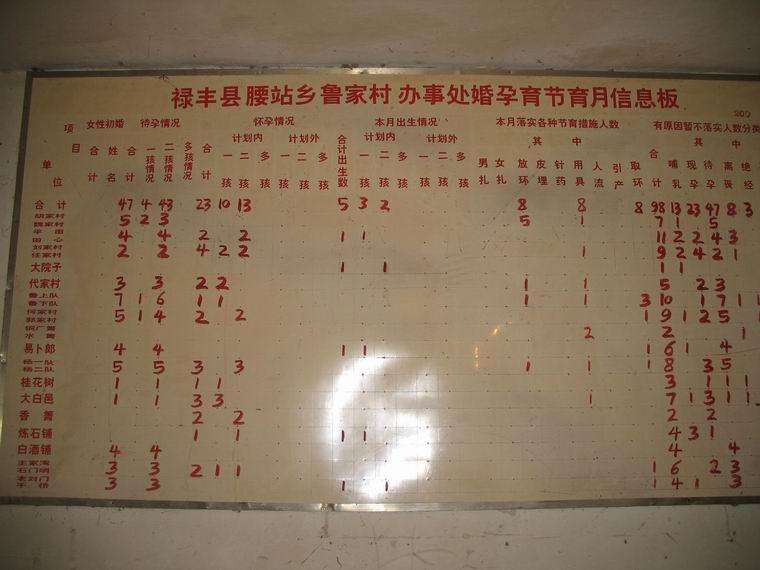 禄丰县腰站乡鲁家村办事处婚孕育节育月信息板
200
项目 女性初婚 待孕情况 怀孕情况 本月出生情况 本月落实各种节育措施人数 有原因暂不落实人数分类
计划内 计划外 计划内 计划外 其中 其中
单位 合计 姓名 合计 一孩情况 二孩情况 多孩情况 合计 一孩 二孩 多孩 一孩 二孩 多孩 合计出生数 一孩 二孩 多孩 一孩 二孩 多孩 男扎 女扎 放环 皮埋 针药 用具 人流 引产 取环 合计 哺乳 现孕 待孕 离丧 绝经
合计 47 4 43 23 10 13 5 3 2 8 8 8 98 13 23 47 8 3
胡家村
魏家村 5 2 3 5 1 7 1 5
平田
田心 4 4 2 2 1 1 11 2 2 4 3
刘家村
任家村 2 2 4 2 2 1 9 2 4 2 1
大院子 1 1 1 1
代家村 3 3 2 2 1 1 5 2 3
鲁上队
鲁下队 7 1 6 1 1 1 1 3 10 1 7 1 1
何家村
郭家村 5 1 4 2 2 1 9 1 2 5 1
铜厂箐
水箐 2 2 1
易卜郎 4 4 1 1 1 6 1 4
杨一队
杨二队 5 5 3 3 1 1 1 8 3 5
桂花树 1 1 1 1 3 1 1
大白邑 1 1 3 3 1 7 1 3 1 1
香箐 2 2 2 2
炼石铺 1 1 1 1 4 3 1
白酒铺 4 4 4 4
王家海
石门明 3 3 2 1 1 1 6 2 3
老对门
干桥 3 3 1 1 1 4 1 3